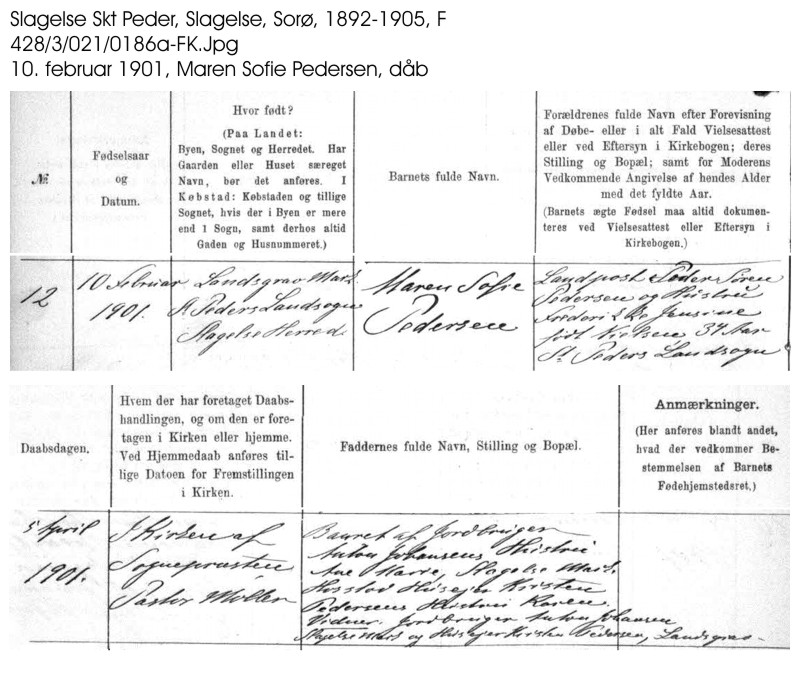 Slagelse Skt Peder, Slagelse, Sorø, 1892-1905, F
428/3/021/0186a-FK.Jpg
10. februar 1901, Maren Sofie Pedersen, dåb
№
Fødselsaar
og
Datum.
Hvor født?
(Paa Landet:
Byen, Sognet og Herredet. Har
Gaarden eller Huset særeget
Navn, bør det anføres. I
Købstad: Købstaden og tillige
Sognet, hvis der i Byen er mere
end 1 Sogn, samt derhos altid
Gaden og Husnummeret.)
Barnets fulde Navn.
Forældrenes fulde Navn efter Forevisning
af Døbe- eller i alt Fald Vielsesattest
eller ved Eftersyn i Kirkebogen; deres
Stilling og Bopæl; samt for Moderens
Vedkommende Angivelse af hendes Alder
med det fyldte Aar.
(Barnets ægte Fødsel maa altid dokumen-
teres ved Vielsesattest eller Eftersyn i
Kirkebogen.)
12
10 Februar
1901.
Landsgrav Mark
St. Peders Landsogn
Slagelse Herred
Maren Sofie
Pedersen
Landpost Peder Søren
Pedersen og Hustru
Frederikke Jensine
født Nielsen 37 Aar
St. Peders Landsogn
Daabsdagen.
Hvem der har foretaget Daabs-
handlingen, og om den er fore-
tagen i Kirken eller hjemme.
Ved Hjemmedaab anføres til-
lige Datoen for Fremstillingen
i Kirken.
Faddernes fulde Navn, Stilling og Bopæl.
Anmærkninger.
(Her anføres blandt andet,
hvad der vedkommer Be-
stemmelsen af Barnets
Fødehjemstedsret.)
5 April
1901.
I Kirken af
Sognepræsten
Pastor Møller
Baaret af Jordbruger
Anton Johansens Hustru
Ane Marie, Slagelse Mark.
Hosstod Husejer Kristen
Pedersens Hustru Karen.
Vidner. Jordbruger Anton Johansen
Slagelse Mark og Husejer Kristen Pedersen, Landsgrav